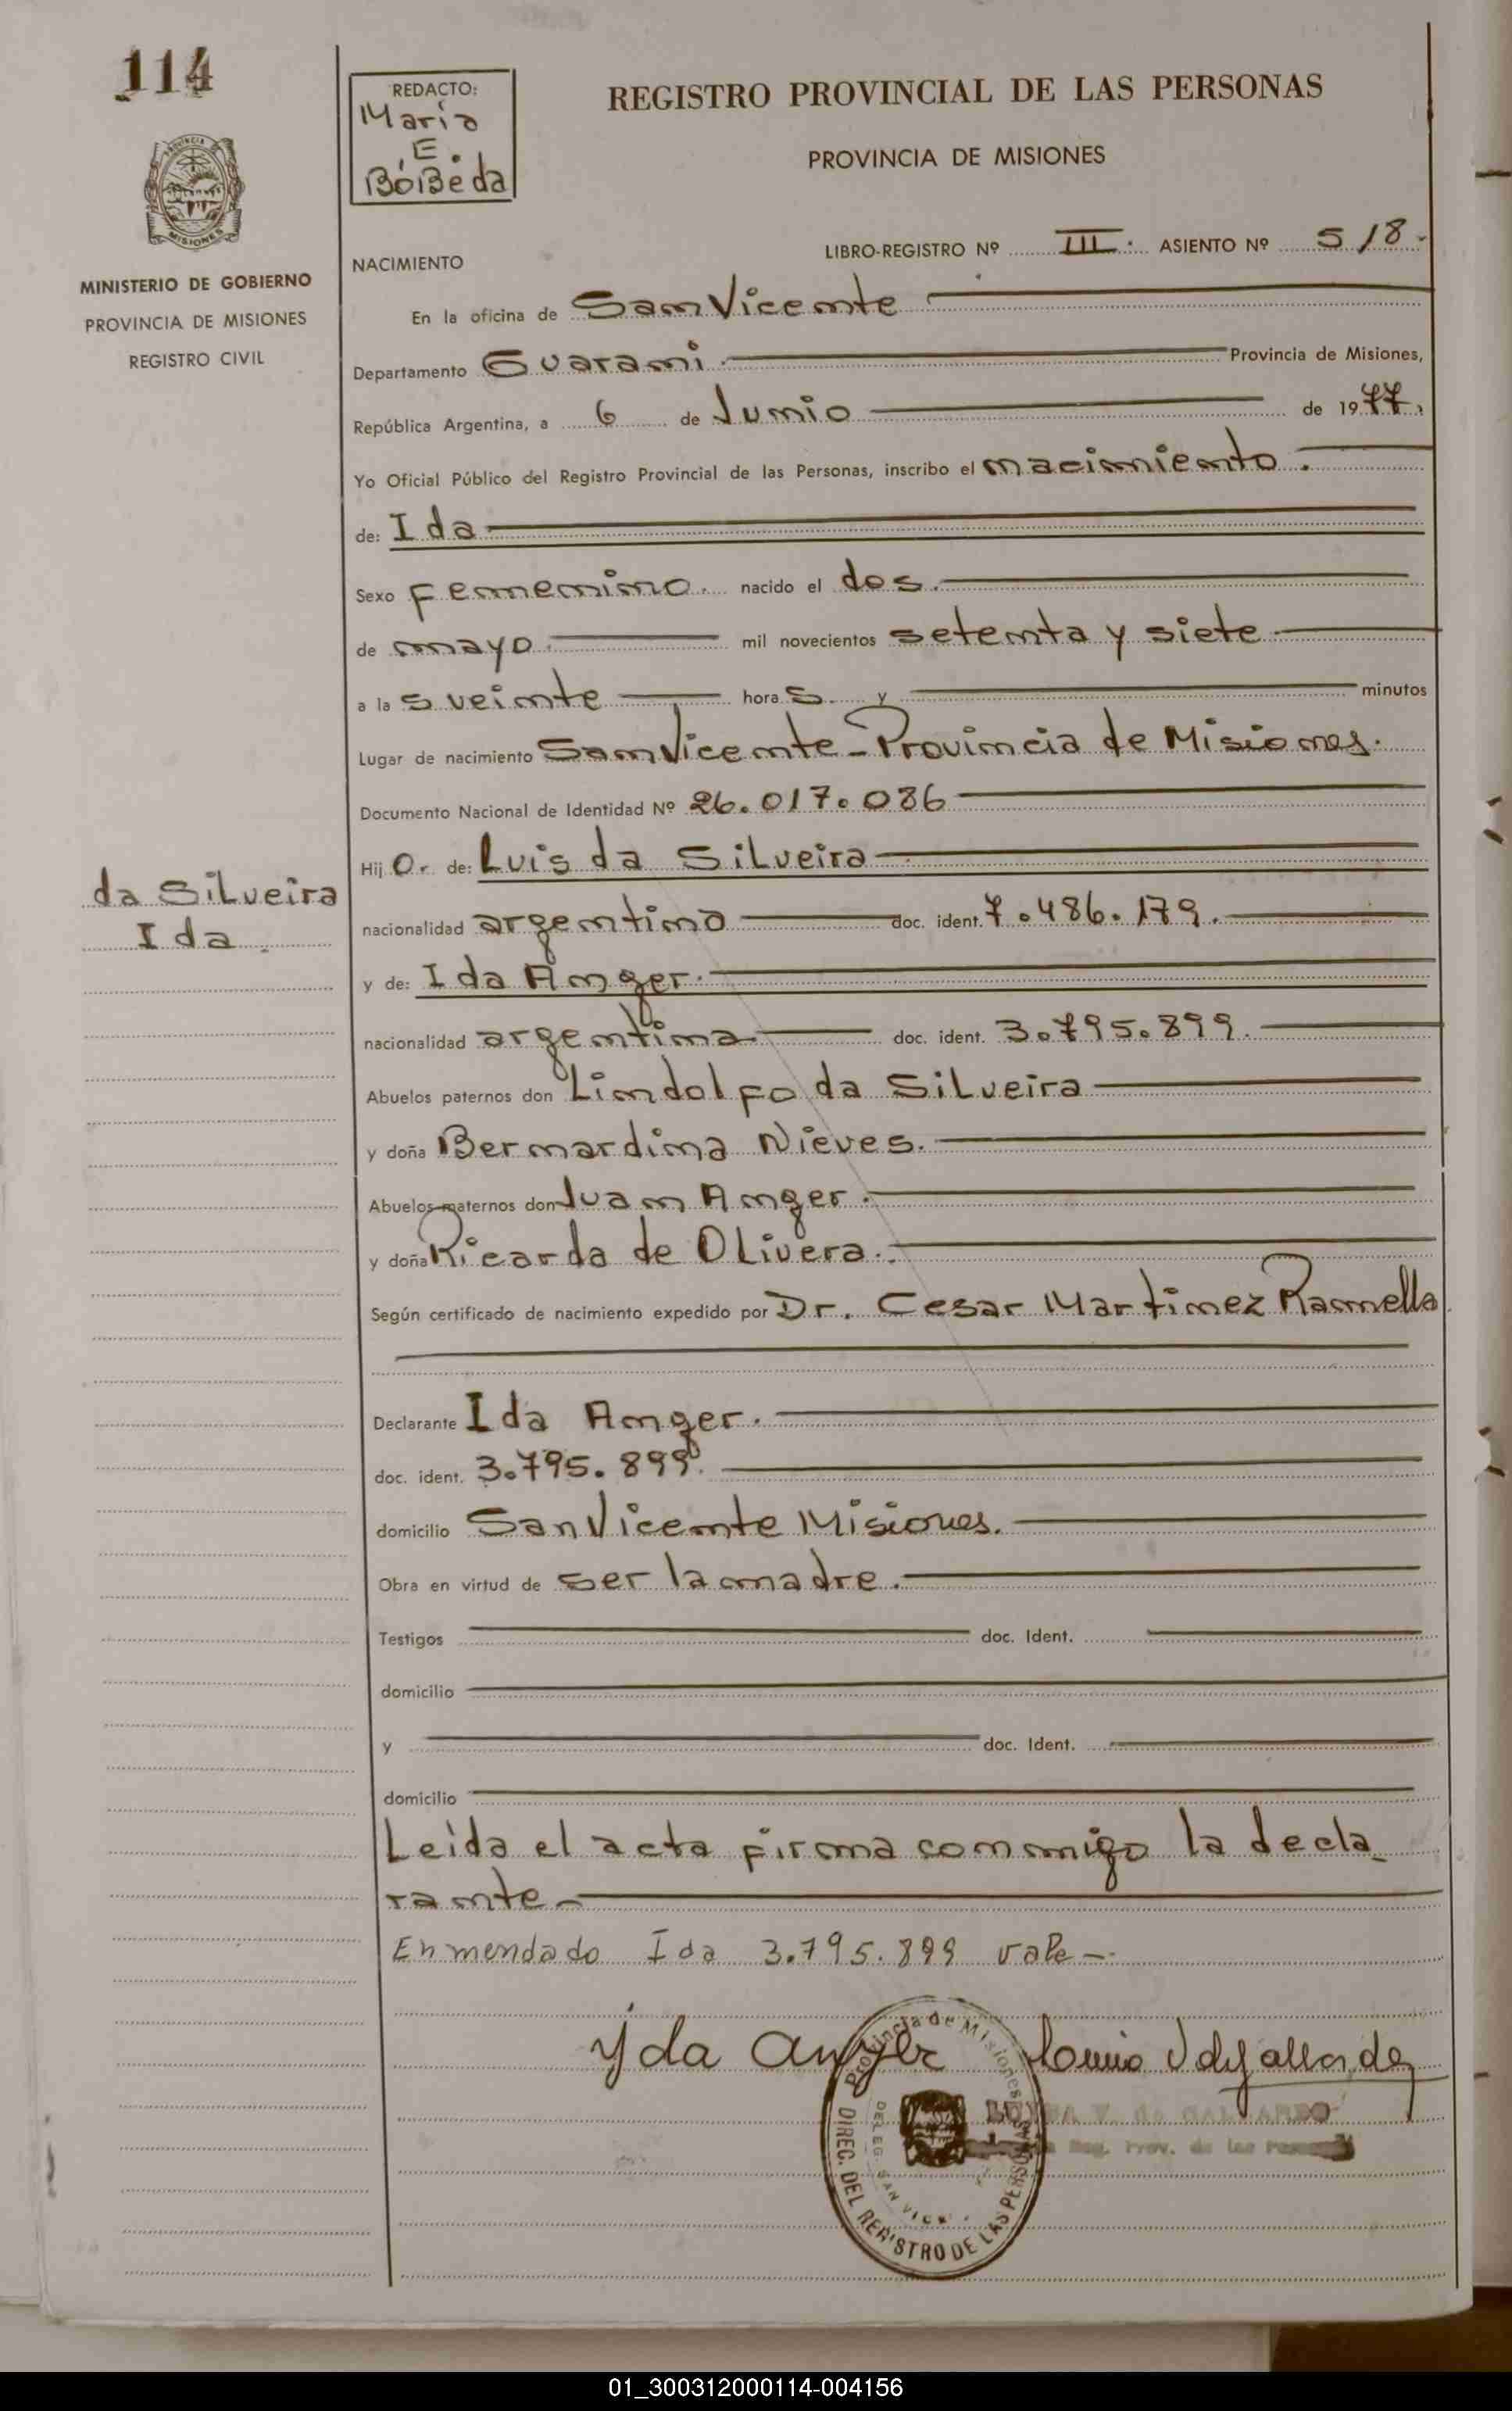 114
REDACTO:
Maria
E.
BóBeda
REGISTRO PROVINCIAL DE LAS PERSONAS
PROVINCIA DE MISIONES
MISIONES
MINISTERIO DE GOBIERNO
PROVINCIA DE MISIONES
REGISTRO CIVIL
LIBRO-REGISTRO Nº III. ASIENTO Nº 518.
NACIMIENTO
En la oficina de San Vicente
Departamento Guarani. Provincia de Misiones,
República Argentina, a 6 de Junio de 1977.
Yo Oficial Público del Registro Provincial de las Personas, inscribo el nacimiento.
de: Ida
Sexo femenino. nacido el dos.
de mayo. mil novecientos setenta y siete
a la s veinte hora s y minutos
Lugar de nacimiento San Vicente - Provincia de Misiones.
Documento Nacional de Identidad Nº 26.017.086
Hij o. de: Luis da Silveira
da Silveira
Ida
nacionalidad argentino doc. ident. 7.486.179.
y de: Ida Anger.
nacionalidad argentina doc. ident. 3.795.899.
Abuelos paternos don Lindolfo da Silveira
y doña Bernardina Nieves.
Abuelos maternos don Juan Anger.
y doña Ricarda de Olivera.
Según certificado de nacimiento expedido por Dr. Cesar Martinez Ramella
Declarante Ida Anger.
doc. ident. 3.795.899.
domicilio San Vicente Misiones.
Obra en virtud de ser la madre.
Testigos doc. Ident.
domicilio
y doc. Ident.
domicilio
Leida el acta firma conmigo la decla_
rante_
Enmendado Ida 3.795.899 vale -.
Yda Anger
Provincia de Misiones
DIREC. DEL REGISTRO DE LAS PERSONAS
DELEG. SAN VICE
V. de GALLARDO
Reg. Prov. de las
01_300312000114-004156